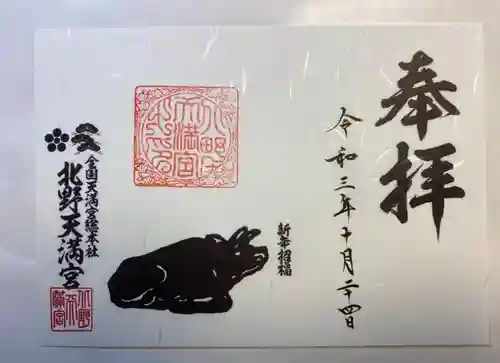 奉拝
令和三年十月二十四日
新年招福
北野天満宮
全国天満宮総本社
北野天満宮